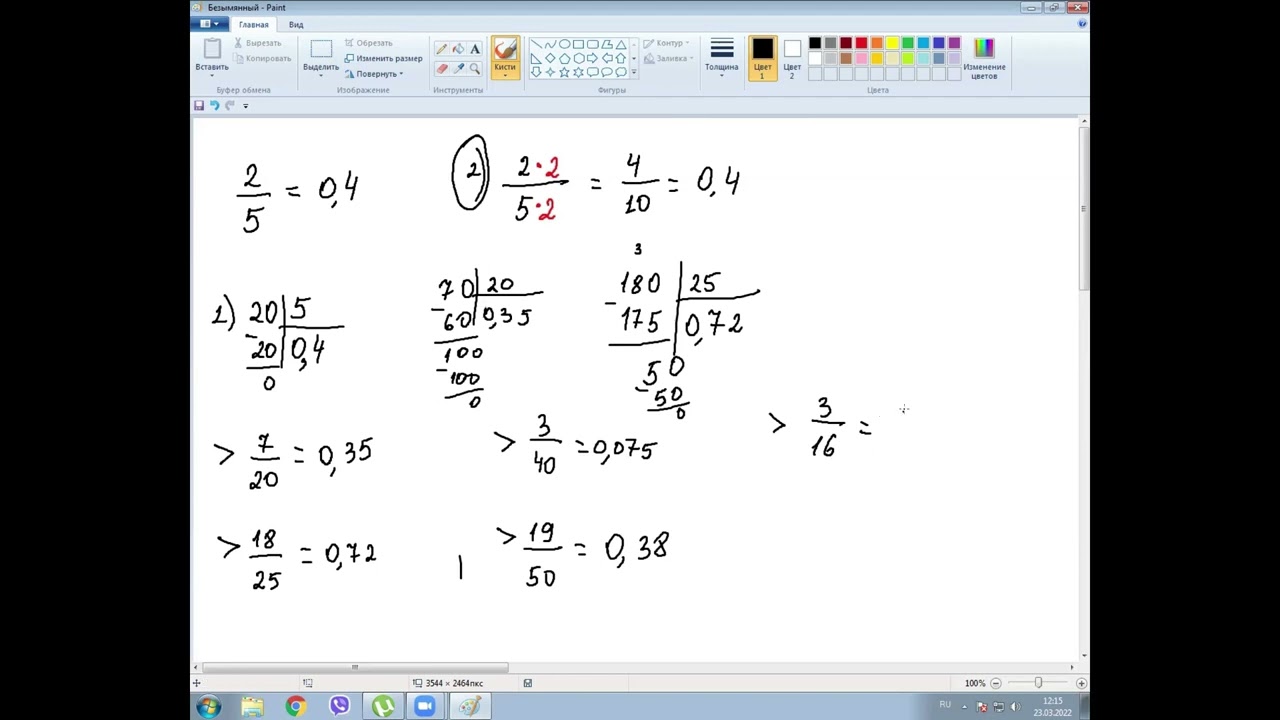 Безымянный - Paint
Главная Вид
Вставить
Вырезать
Копировать
Буфер обмена
Выделить
Обрезать
Изменить размер
Повернуть
Изображение
A
Инструменты
Кисти
Контур
Заливка
Фигуры
Толщина
Цвет 1
Цвет 2
Изменение цветов
Цвета
2/5 = 0,4
2 2·2/5·2 = 4/10 = 0,4
1) 20 | 5
-20 | 0,4
0
70 | 20
-60 | 0,35
100
-100
0
3
180 | 25
-175 | 0,72
50
-50
0
> 7/20 = 0,35
> 3/40 = 0,075
> 3/16 =
> 18/25 = 0,72
> 19/50 = 0,38
3544 × 2464пкс
100%
RU
12:15
23.03.2022